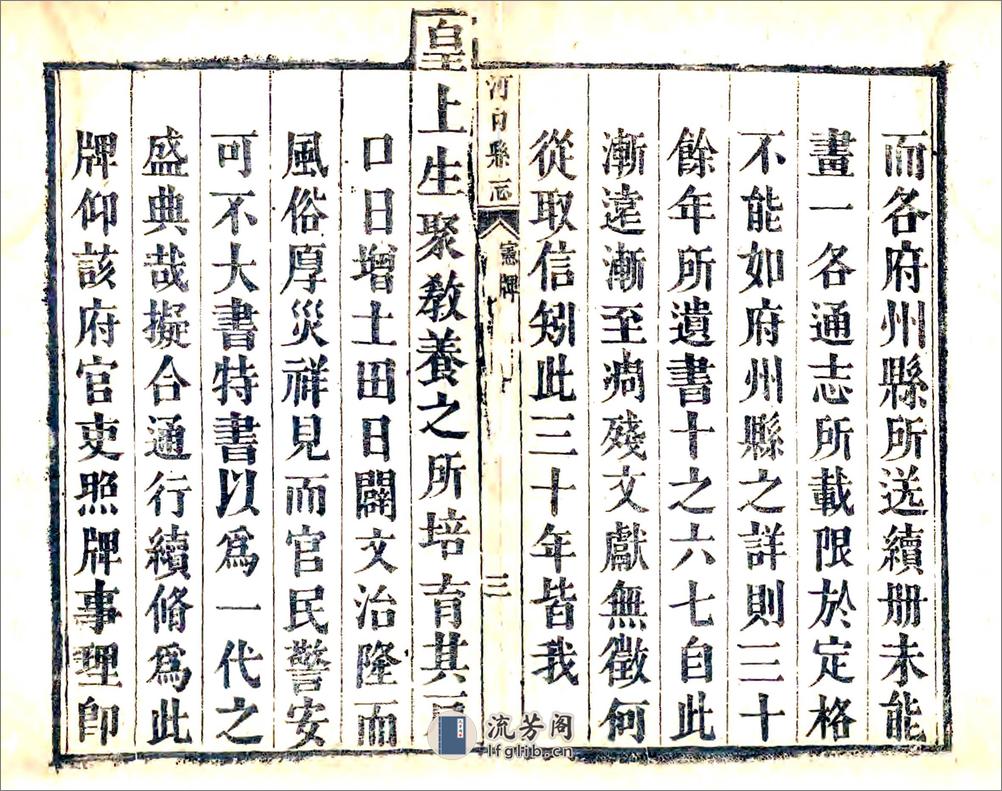 而各府州縣所送續册未能
畫一各通志所載限於定格
不能如府州縣之詳則三十
餘年所遺書十之六七自此
漸遠漸至凋殘文獻無徵何
從取信矧此三十年皆我
河內縣志
憲牌
三
皇上生聚教養之所培育其
口日增土田日闢文治隆而
風俗厚災祥見而官民警安
可不大書特書以爲一代之
盛典哉擬合通行續脩爲此
牌仰該府官吏照牌事理卽
流芳阁
lfglib.cn